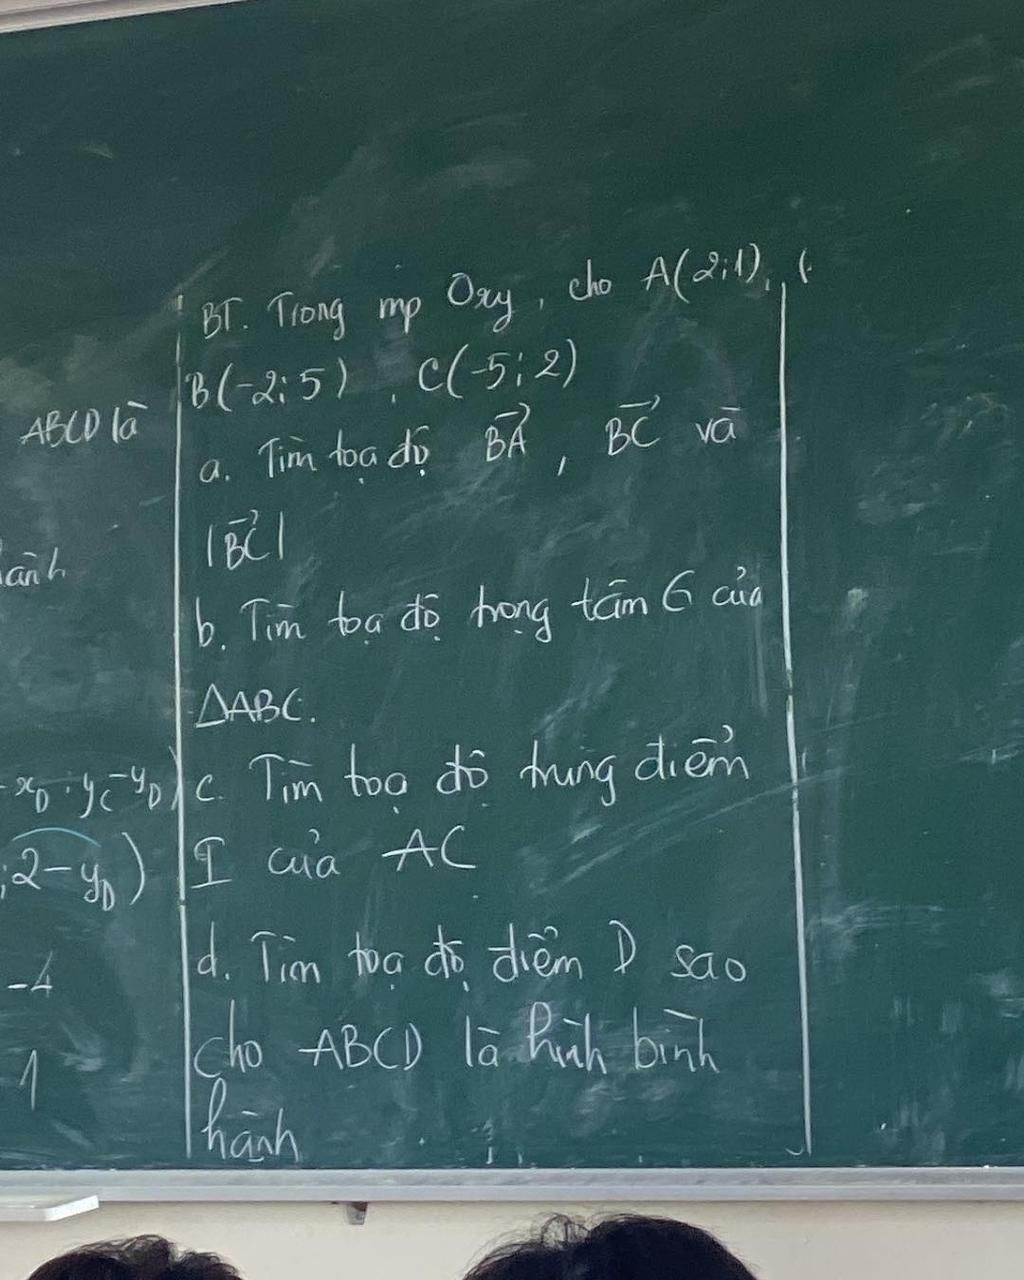 ABCD là
ành
- x_D ; y_C - y_D)
; 2 - y_D)
-4
1
BT. Trong mp Oxy, cho A(2;1), (
B(-2;5), C(-5;2)
a. Tìm toạ độ \vec{BA}, \vec{BC} và
|\vec{BC}|
b. Tìm toạ độ trọng tâm G của
ΔABC.
c. Tìm toạ độ trung điểm
I của AC
d. Tìm toạ độ điểm D sao
cho ABCD là hình bình
hành